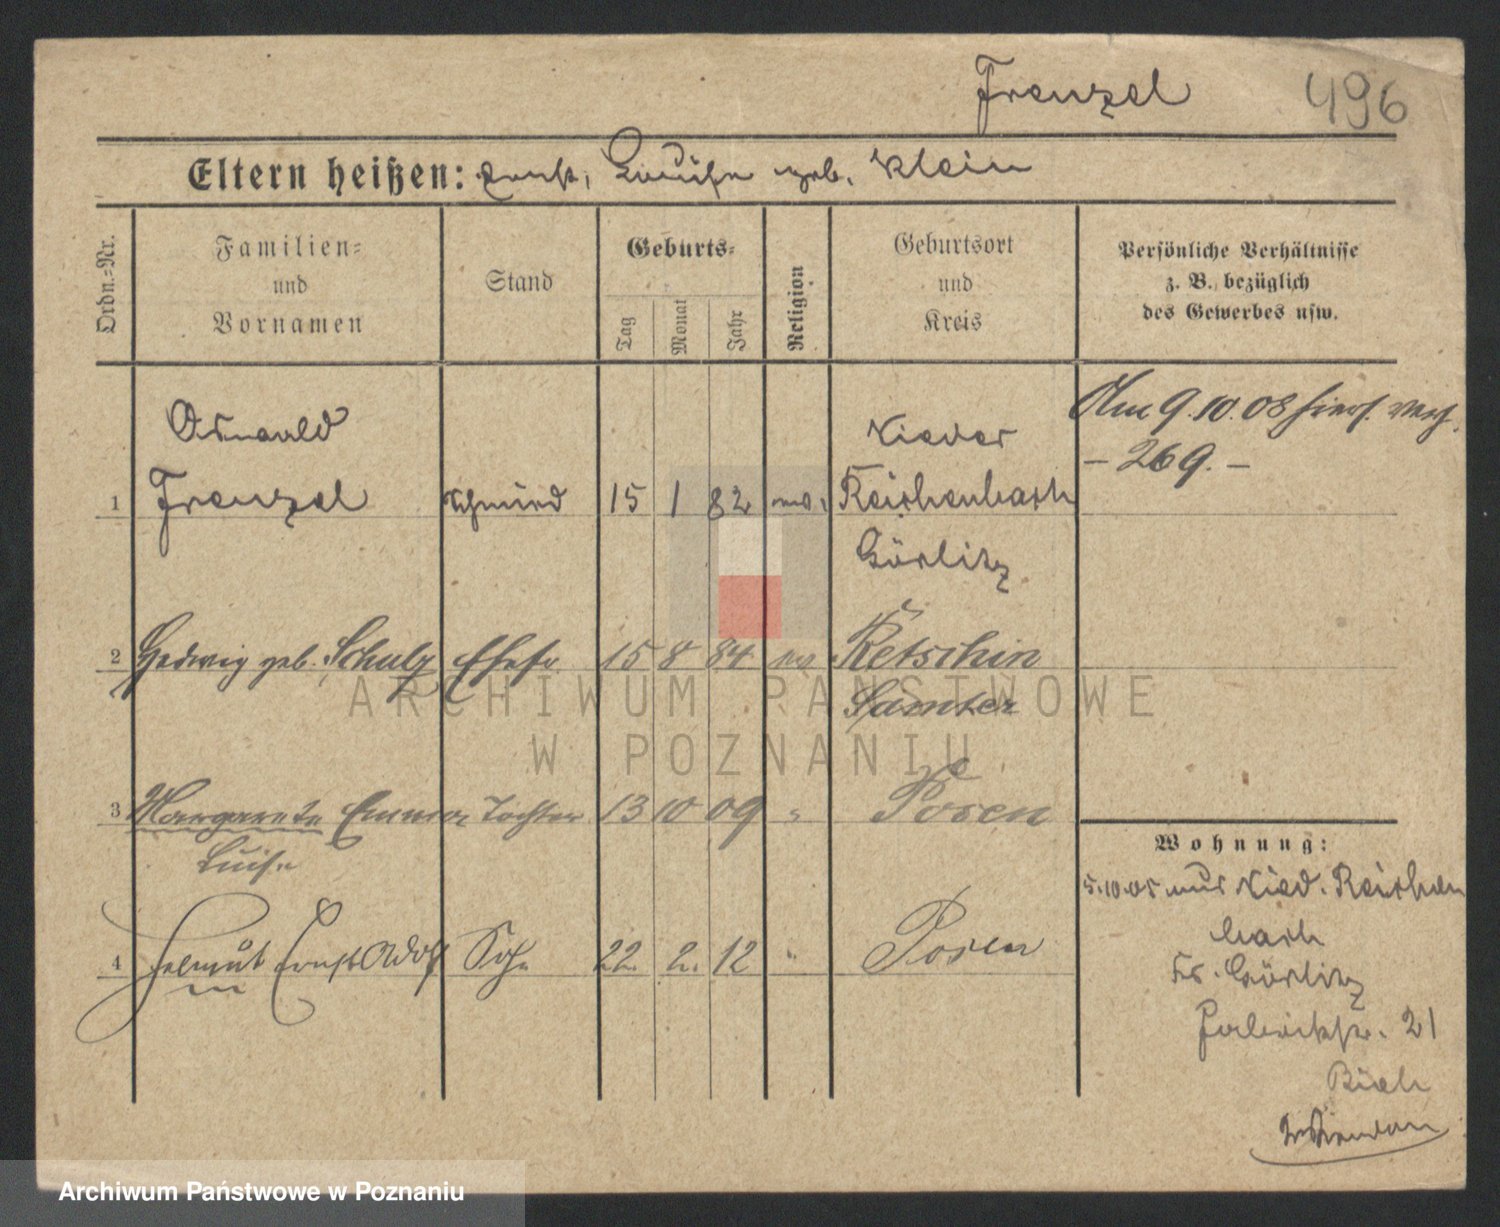 Frenzel 496
Eltern heißen: Ernst, Louise geb. Klein
Ordn.=Nr.
Familien=
und
Vornamen
Stand
Geburts=
Tag
Monat
Jahr
Religion
Geburtsort
und
Kreis
Persönliche Verhältnisse
z. B. bezüglich
des Gewerbes usw.
Oswald
1 Frenzel Schmied 15 1 82 ev. Nieder
Reichenbach
Görlitz
Am 9.10.08 hiers. verh.
- 269. -
2 Hedwig geb. Schulz Ehefr 15 8 84 ev Retschin
Samter
3 Margarete Emma Tochter 13 10 09 " Posen
Luise
4 Helmut Ernst Adolf Sohn 22. 2. 12 " Posen
Wohnung:
5.10.05 aus Nied. Reichen
bach
Kr. Görlitz
21
ARCHIWUM PAŃSTWOWE
W POZNANIU
Archiwum Państwowe w Poznaniu